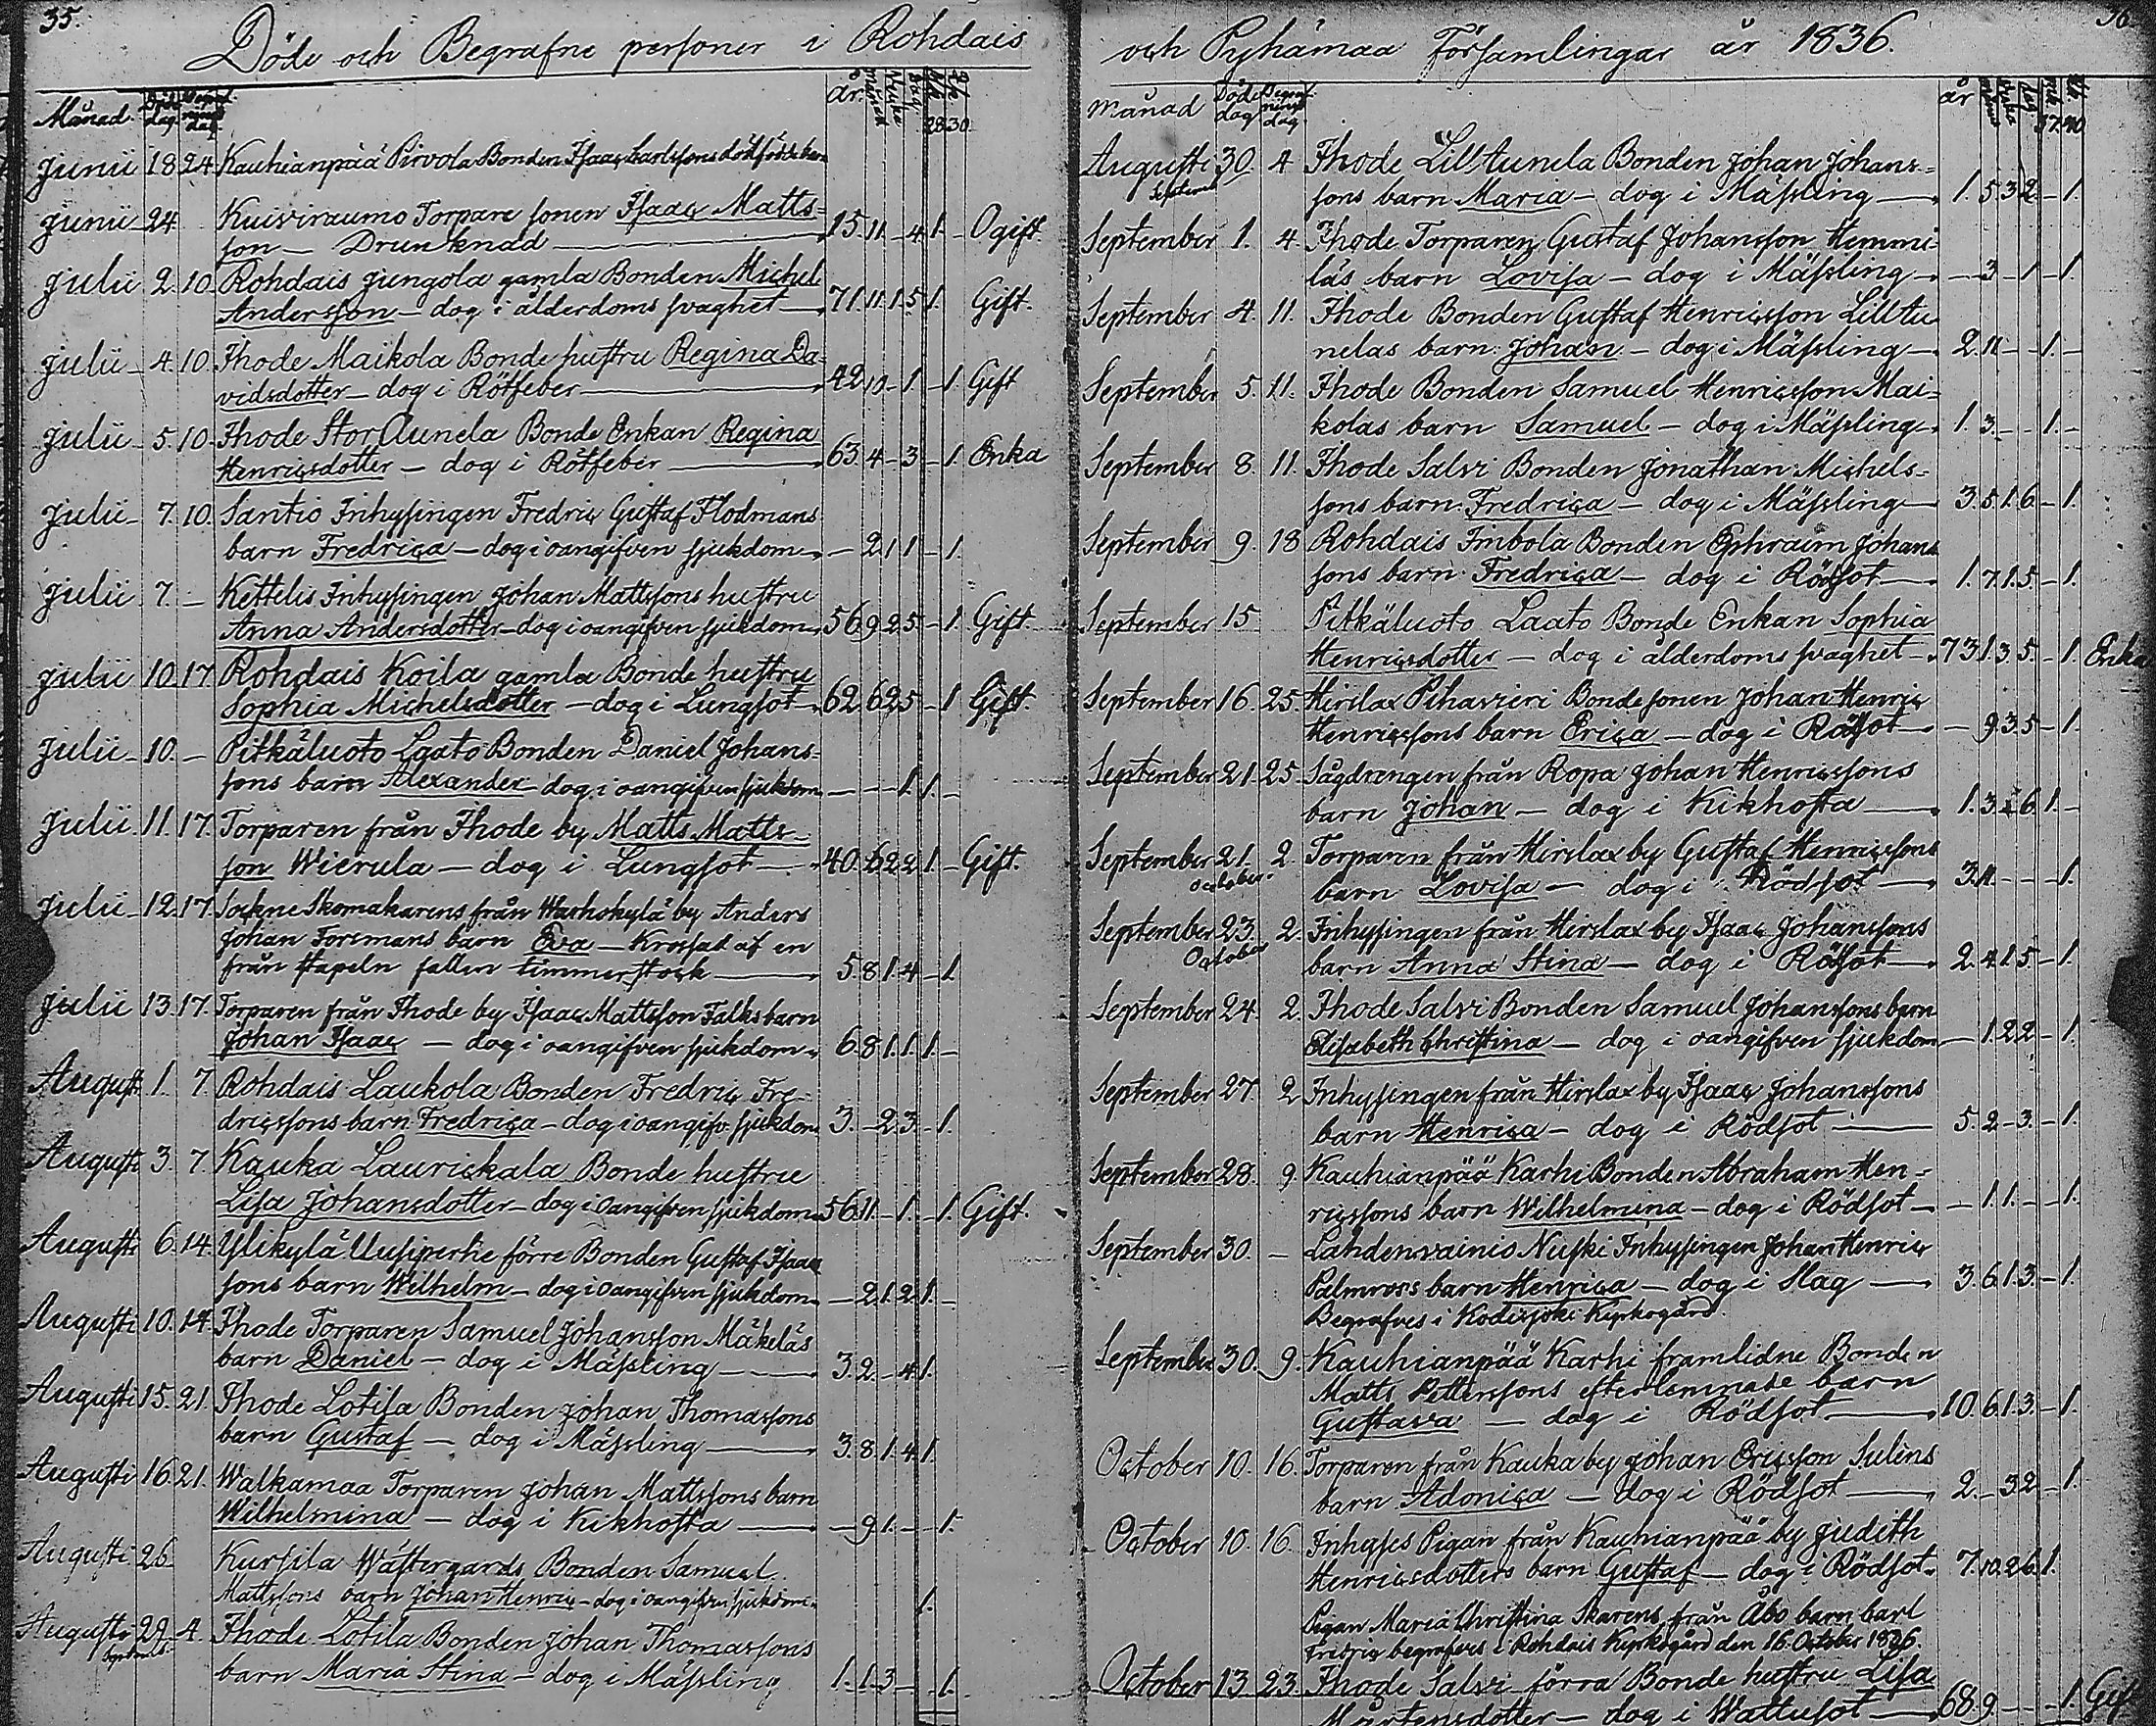 35.
Döde och Begrafne personer i Rohdais
Månad. Döde dag. Begrafnings dag. år. månad Veckor dag 28 30
Junii 18 24 Kauhianpää Pirvola Bonden Isaac Carlssons dödfödde barn
Junii 24 Kuiviraumo Torpare sonen Isaac Matts=
son — Drunknad — 15. 11. - 4 1. - Ogift.
Julii 2 10 Rohdais Jungola gamla Bonden Michel
Andersson — dog i ålderdoms svaghet — 71. 11. 1. 5. 1. Gift.
Julii 4. 10. Ihode Maikola Bonde hustru Regina Da=
vidsdotter — dog i Rötfeber — 42 10 - 1 - 1. Gift
Julii 5. 10. Ihode Stor Aunela Bonde Enkan Regina
Henricsdotter — dog i Rötfeber — 63. 4 - 3 - 1. Enka
Julii 7. 10. Santio Inhysingen Fredric Gustaf Flodmans
barn Fredrica — dog i oangifven sjukdom — - 2 1 1 - 1.
Julii 7. - Kettelis Inhysingen Johan Mattssons hustru
Anna Andersdotter — dog i oangifven sjukdom — 56 9 2 5 - 1. Gift.
Julii 10. 17 Rohdais Koila gamla Bonde hustru
Sophia Michelsdotter — dog i Lungsot — 62 6 2 5 - 1 Gift.
Julii 10. - Pitkäluoto Laato Bonden Daniel Johans=
sons barn Alexander — dog i oangifven sjukdom — - - - 1. 1. -
Julii 11. 17. Torparen från Ihode by Matts Matts=
son Wierula — dog i Lungsot — 40. 6 2 2 1. - Gift.
Julii 12. 17. Sockne Skomakarens från Warhokylä by Anders
Johan Forsmans barn Eva — Krossad af en
från stapeln fallen timmerstock — 5. 8 1. 4 - 1.
Julii 13. 17. Torparen från Ihode by Isaac Mattsson Falks barn
Johan Isaac — dog i oangifven sjukdom — 6. 8 1. 1. 1. -
Augusti 1. 7. Rohdais Laukola Bonden Fredric Fre=
dricssons barn Fredrica — dog i oangifv. sjukdom 3. - 2 3 - 1.
Augusti 3. 7. Kauka Laurickala Bonde hustru
Lisa Johansdotter — dog i oangifven sjukdom — 56 11 - 1. - 1. Gift.
Augusti 6. 14. Ylikylä Uusipertie förre Bonden Gustaf Isaacs
sons barn Wilhelm — dog i oangifven sjukdom — - 2 1. 2 1. -
Augusti 10. 14. Ihode Torparen Samuel Johansson Mäkeläs
barn Daniel — dog i Mässling — 3. 2 - 4 1.
Augusti 15. 21. Ihode Lotila Bonden Johan Thomassons
barn Gustaf — dog i Mässling — 3. 8. 1. 4. 1.
Augusti 16. 21. Walkamaa Torparen Johan Mattssons barn
Wilhelmina — dog i Kikhosta — - 9 1. - - 1.
Augusti 26 Kursila Wästergårds Bonden Samuel
Mattssons barn Johan Henric — dog i oangifven sjukdom. 1.
Augusti 29 4. Ihode Lotila Bonden Johan Thomassons
Septemb. barn Maria Stina — dog i Mässling 1. 1. 3 - - 1.
36
och Pyhämaa Församlingar år 1836.
Månad Döde dag Begrafnings dag. år 37. 40.
Augusti 30. 4 Ihode Lill Aunela Bonden Johan Johans=
Septemb. sons barn Maria — dog i Mässling — 1. 5. 3 2 - 1.
September 1. 4 Ihode Torparen Gustaf Johansson Hemmi=
läs barn Lovisa — dog i Mässling — - 3 - 1 - 1.
September 4. 11. Ihode Bonden Gustaf Henricsson Lill Au
nelas barn Johan — dog i Mässling — 2. 11 - - 1. -
September 5. 11. Ihode Bonden Samuel Henricsson Mai=
kolas barn Samuel — dog i Mässling — 1. 3. - - 1. -
September 8 11. Ihode Salvi Bonden Jonathan Michels=
sons barn Fredrica — dog i Mässling — 3. 5 1. 6 - 1.
September 9. 18 Rohdais Imbola Bonden Ephraim Johans
sons barn Fredrica — dog i Rödsot — 1. 7. 1. 5. - 1.
September 15 Pitkäluoto Laato Bonde Enkan Sophia
Henricsdotter — dog i ålderdoms svaghet — 73 1. 3. 5. - 1. Enka
September 16. 25. Hirslax Pihavieri Bondesonen Johan Henric
Henricssons barn Erica — dog i Rödsot — - 9. 3. 5 - 1.
September 21 25. Sågdrengen från Ropa Johan Henricssons
barn Johan — dog i Kikhosta — 1. 3. 6 1. -
September 21. 2. Torparen från Hirslax by Gustaf Henricssons
October. barn Lovisa — dog i Rödsot — 3. 4. - - - 1.
September 23. 2. Inhysingen från Hirslax by Isaac Johanssons
October barn Anna Stina — dog i Rödsot — 2. 4. 1. 5 - 1.
September 24. 2 Ihode Salvi Bonden Samuel Johanssons barn
Elisabeth Christina — dog i oangifven sjukdom — 1. 2 2 - 1.
September 27 2 Inhysingen från Hirslax by Isaac Johanssons
barn Henrica — dog i Rödsot — 5. 2 - 3. - 1.
September 28. 9. Kauhianpää Karhi Bonden Abraham Hen=
ricssons barn Wilhelmina — dog i Rödsot — - 1. 1. - - 1.
September 30. - Lahdenvainio Nuski Inhysingen Johan Henric
Palmross barn Henrica — dog i Slag — 3. 6. 1. 3. - 1.
Begrafves i Kodisjoki Kyrkogård.
September 30. 9. Kauhianpää Karhi framlidne Bonden
Matts Pettersons efterlemnade barn
Gustava — dog i Rödsot — 10. 6. 1. 3. - 1.
October 10. 16. Torparen från Kauka by Johan Ericsson Sulins
barn Adonica — dog i Rödsot — 2. - 3 2 - 1.
October 10. 16. Inhyses Pigan från Kauhianpää by Judith
Henricsdotters barn Gustaf — dog i Rödsot. 7. 10. 2 6 1.
Pigan Maria Christina Skarens från Åbo barn Carl
Fredric begrafves i Rohdais Kyrkogård den 16. October 1836.
October 13 23 Ihode Salvi förra Bonde hustru Lisa
Mårtensdotter — dog i Wattusot — 68. 9 - - - 1. Gift